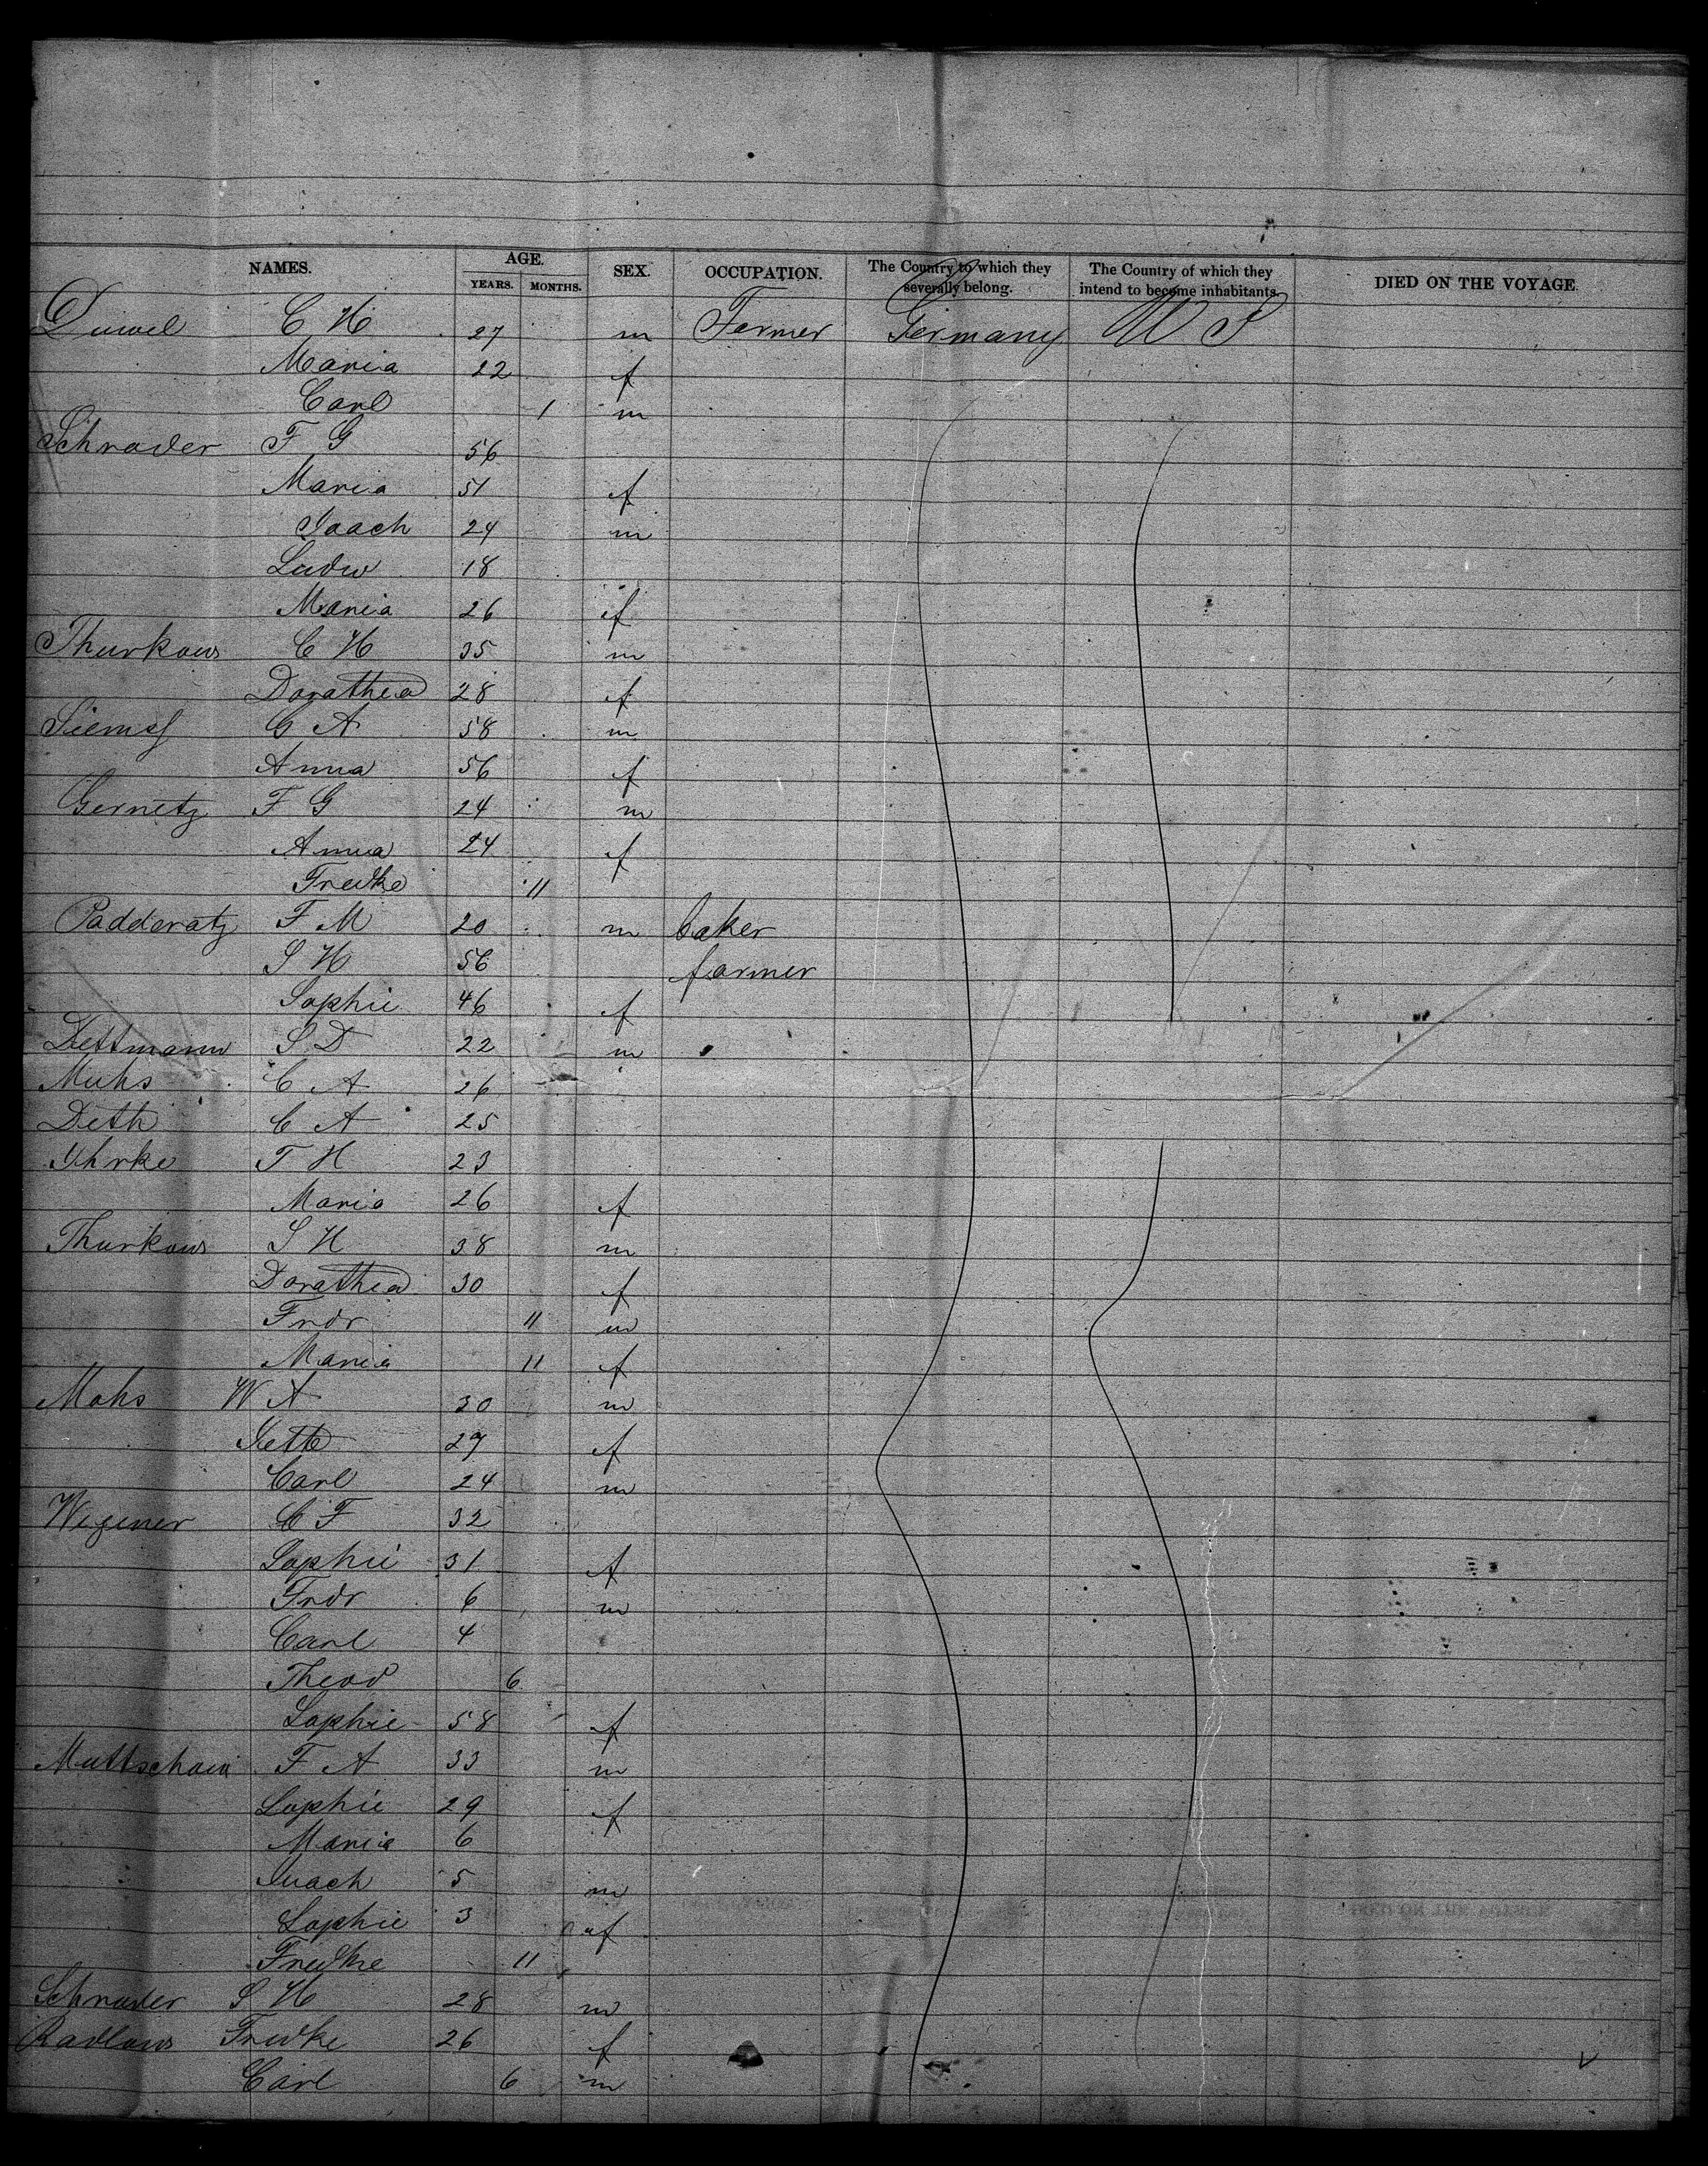 NAMES. AGE. SEX. OCCUPATION. The Country to which they severally belong. The Country of which they intend to become inhabitants. DIED ON THE VOYAGE.
YEARS. MONTHS.
Duwel C H 27 m Farmer Germany U S
Maria 22 f
Carl 1 m
Schrader F G 56
Maria 51 f
Joach 24 m
Ludw 18
Maria 26 f
Thurkow C H 35 m
Dorathea 28 f
Siems C A 58 m
Anna 56 f
Gernetz F G 24 m
Anna 24 f
Friedke 11
Padderatz F M 20 m baker
S H 56 farmer
Sophie 46 f
Dettmann S D 22 m
Muhs C A 26
Deth C A 25
Ihrke F H 23
Maria 26 f
Thurkow S H 38 m
Dorathea 30 f
Frdr 11 m
Maria 11 f
Mahs W A 30 m
Jette 27 f
Carl 24 m
Wegener C F 32
Sophie 31 f
Frdr 6 m
Carl 4
Theod 6
Sophie 58 f
F A 33 m
Sophie 29 f
Maria 6
Joach 5 m
Sophie 3 f
Friedke 11
Schrader S H 28 m
Radlow Friedke 26 f
Carl 6 m